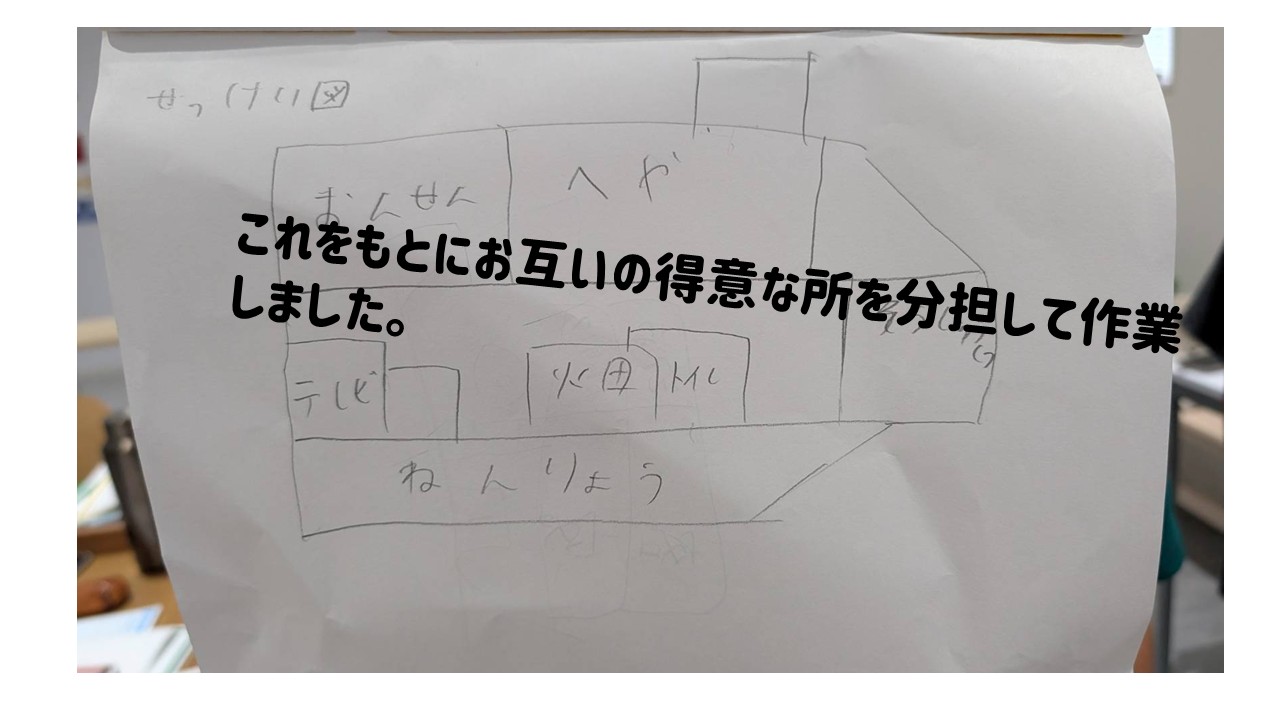 せっけい図
おんせん
へや
これをもとにお互いの得意な所を分担して作業
しました。
テレビ
トイレ
ねんりょう